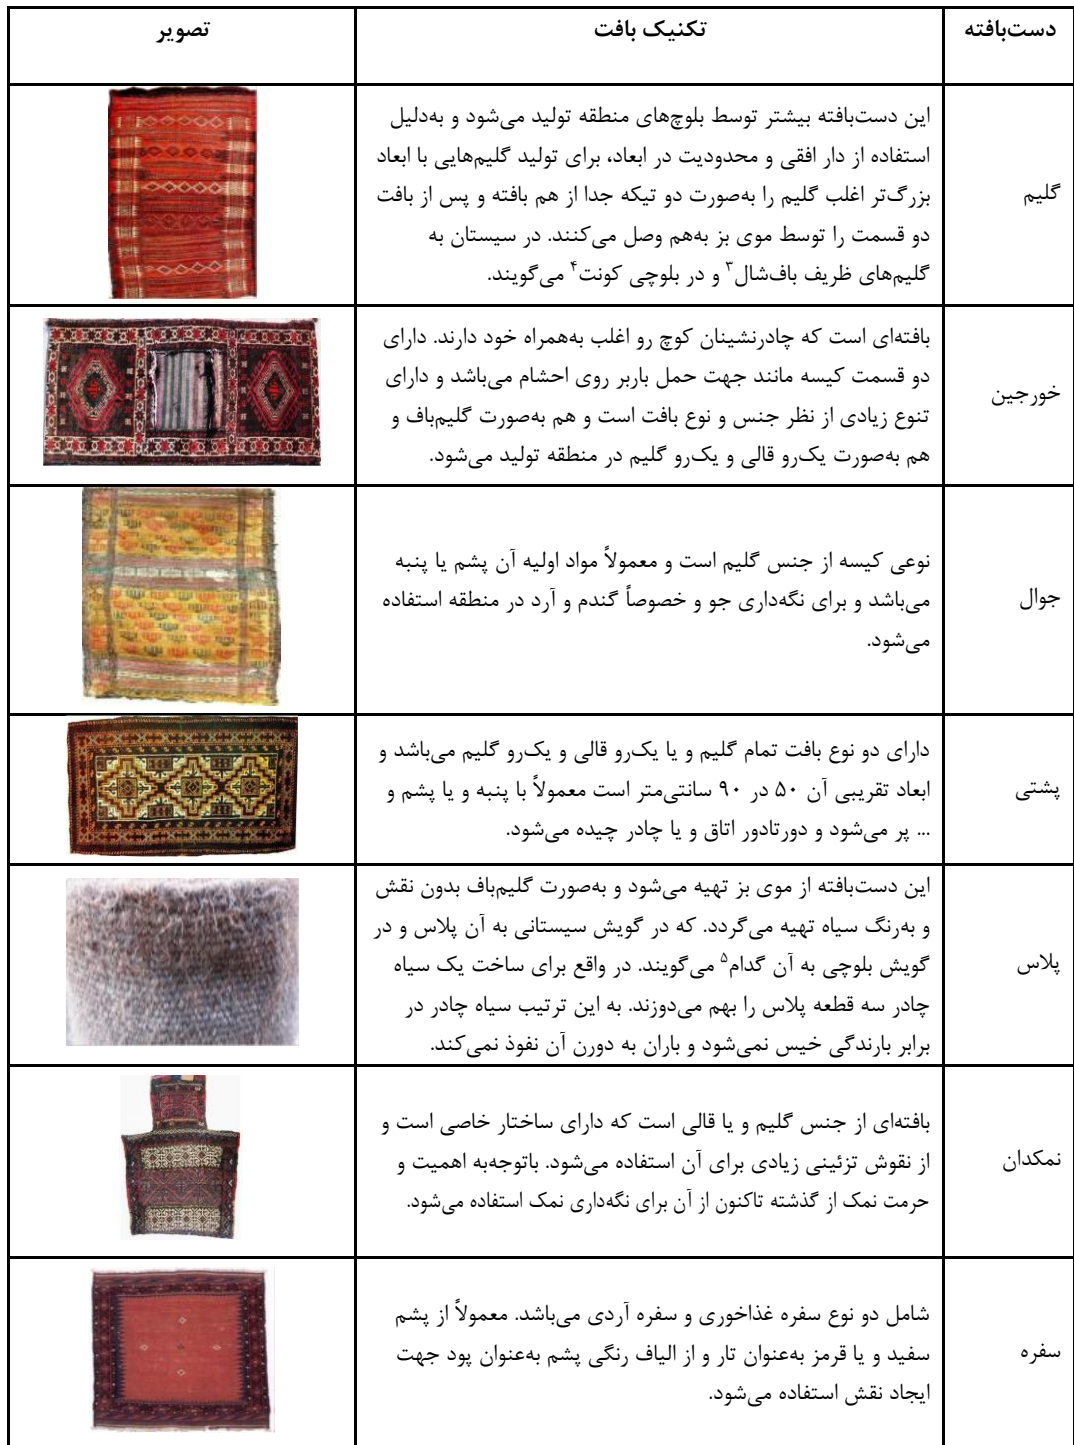 دست‌بافته
تکنیک بافت
تصویر
گلیم
این دست‌بافته بیشتر توسط بلوچ‌های منطقه تولید می‌شود و به‌دلیل
استفاده از دار افقی و محدودیت در ابعاد، برای تولید گلیم‌هایی با ابعاد
بزرگ‌تر اغلب گلیم را به‌صورت دو تیکه جدا از هم بافته و پس از بافت
دو قسمت را توسط موی بز به‌هم وصل می‌کنند. در سیستان به
گلیم‌های ظریف باف‌شال۳ و در بلوچی کونت۴ می‌گویند.
خورجین
بافته‌ای است که چادرنشینان کوچ رو اغلب به‌همراه خود دارند. دارای
دو قسمت کیسه مانند جهت حمل باربر روی احشام می‌باشد و دارای
تنوع زیادی از نظر جنس و نوع بافت است و هم به‌صورت گلیم‌باف و
هم به‌صورت یک‌رو قالی و یک‌رو گلیم در منطقه تولید می‌شود.
جوال
نوعی کیسه از جنس گلیم است و معمولاً مواد اولیه آن پشم یا پنبه
می‌باشد و برای نگه‌داری جو و خصوصاً گندم و آرد در منطقه استفاده
می‌شود.
پشتی
دارای دو نوع بافت تمام گلیم و یا یک‌رو قالی و یک‌رو گلیم می‌باشد و
ابعاد تقریبی آن ۵۰ در ۹۰ سانتی‌متر است معمولاً با پنبه و یا پشم و
... پر می‌شود و دورتادور اتاق و یا چادر چیده می‌شود.
پلاس
این دست‌بافته از موی بز تهیه می‌شود و به‌صورت گلیم‌باف بدون نقش
و به‌رنگ سیاه تهیه می‌گردد. که در گویش سیستانی به آن پلاس و در
گویش بلوچی به آن گدام۵ می‌گویند. در واقع برای ساخت یک سیاه
چادر سه قطعه پلاس را بهم می‌دوزند. به این ترتیب سیاه چادر در
برابر بارندگی خیس نمی‌شود و باران به دورن آن نفوذ نمی‌کند.
نمکدان
بافته‌ای از جنس گلیم و یا قالی است که دارای ساختار خاصی است و
از نقوش تزئینی زیادی برای آن استفاده می‌شود. باتوجه‌به اهمیت و
حرمت نمک از گذشته تاکنون از آن برای نگه‌داری نمک استفاده می‌شود.
سفره
شامل دو نوع سفره غذاخوری و سفره آردی می‌باشد. معمولاً از پشم
سفید و یا قرمز به‌عنوان تار و از الیاف رنگی پشم به‌عنوان پود جهت
ایجاد نقش استفاده می‌شود.